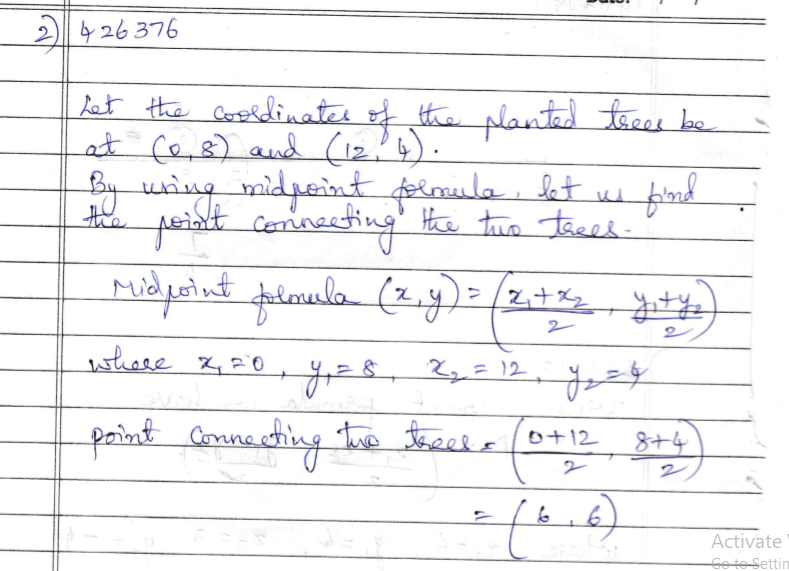 2) 426376
Let the coordinates of the planted trees be
at (0,8) and (12,4).
By using midpoint formula, let us find
the point connecting the two trees.
Midpoint formula (x,y) = (x₁+x₂/2, y₁+y₂/2)
where x₁=0, y₁=8, x₂=12, y₂=4
point connecting two trees = (0+12/2, 8+4/2)
= (6,6)
Activate
Go to Settin